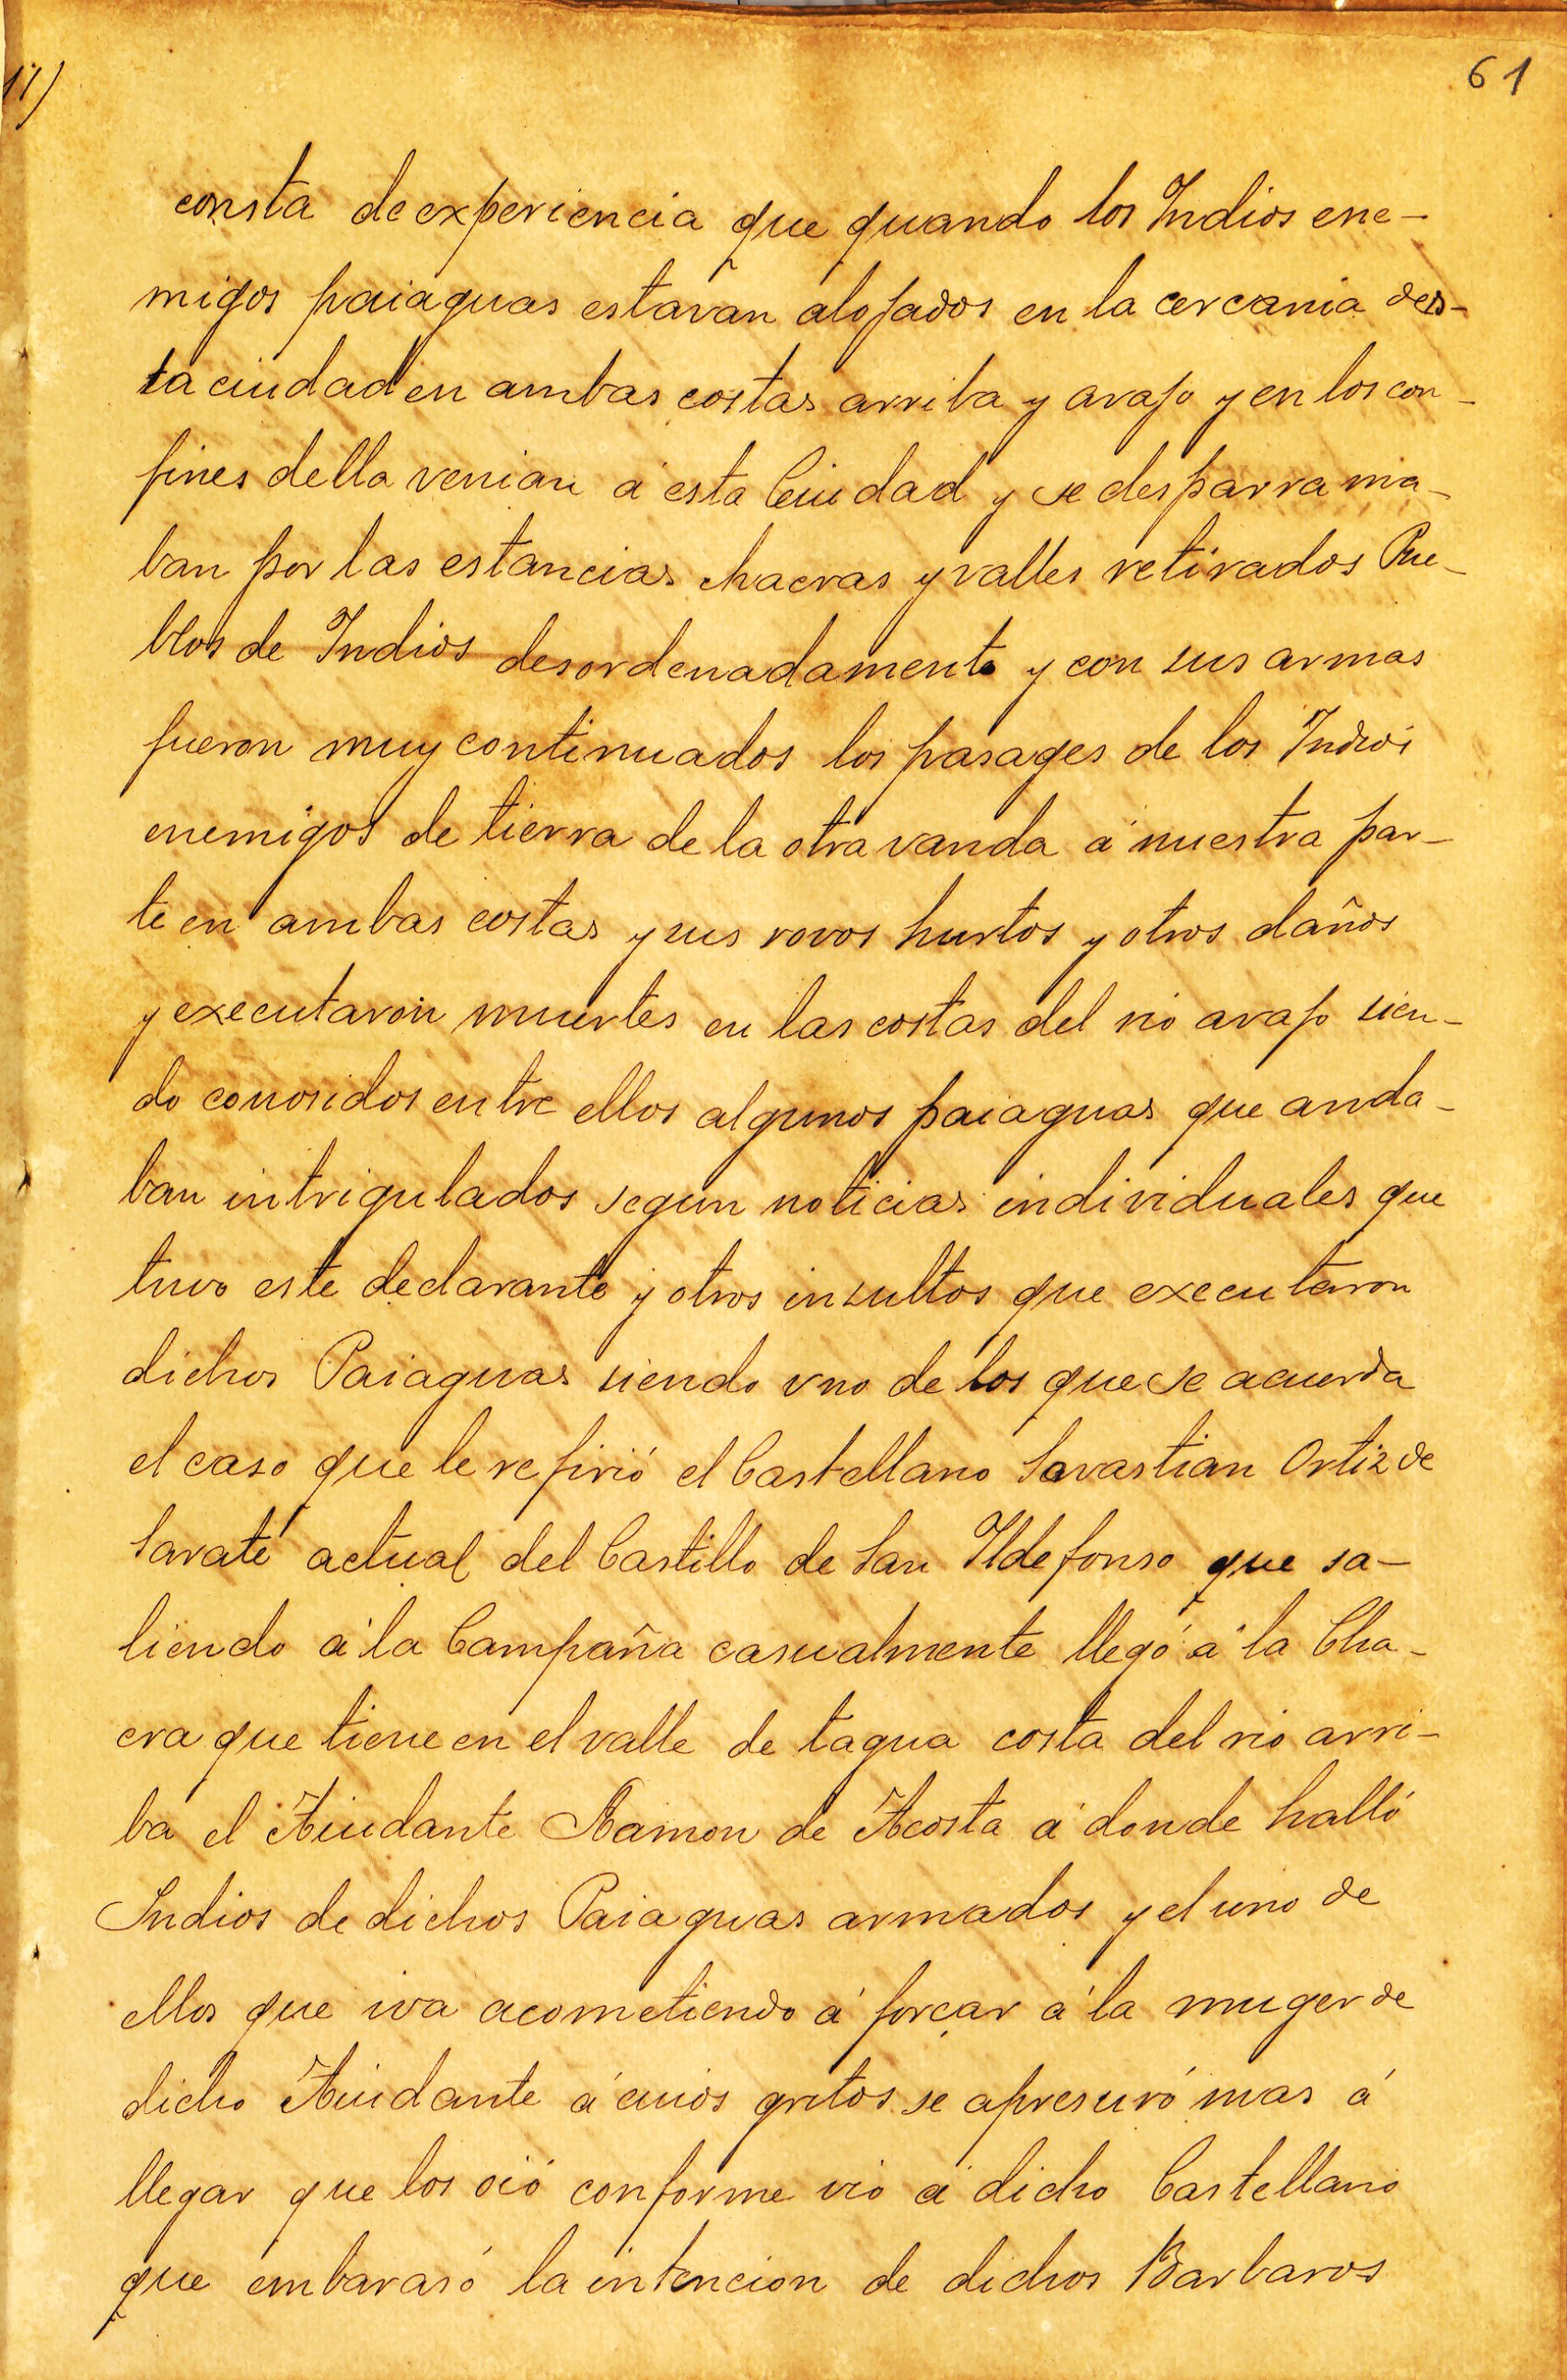 61
consta de experiencia que quando los Indios ene-
migos paiaguas estavan alojados en la cercania des-
ta ciudad en ambas costas arriba y avajo y en los con-
fines della venian á esta Ciudad y se desparrama-
ban por las estancias chacras y valles retirados Pue-
blos de Indios desordenadamente y con sus armas
fueron muy continuados los pasages de los Indios
enemigos de tierra de la otra vanda á nuestra par-
te en ambas costas y sus rovos hurtos y otros daños
y executaron muertes en las costas del rio avajo sien-
do conosidos entre ellos algunos paiaguas que anda-
ban intrigulados segun noticias individuales que
tuvo este declarante y otros insultos que executaron
dichos Paiaguas siendo vno de los que se acuerda
el caso que le refirió el Castellano Savastian Ortiz de
Sarate actual del Castillo de San Ildefonso que sa-
liendo á la Campaña casualmente llegó á la Cha-
cra que tiene en el valle de tagua costa del rio arri-
ba el Aiudante Ramon de Acosta á donde halló
Indios de dichos Paiaguas armados y el uno de
ellos que iva acometiendo á forçar á la muger de
dicho Aiudante á cuios gritos se apresuró mas á
llegar que los oió conforme vio á dicho Castellano
que embarasó la intencion de dichos Barbaros